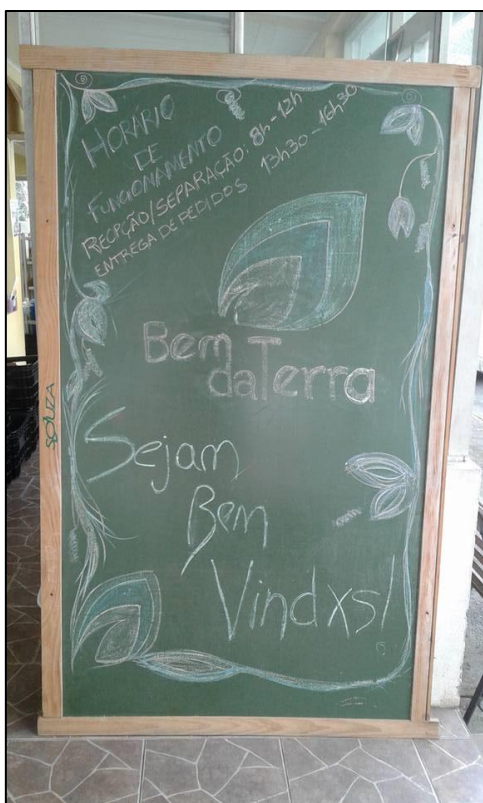 HORÁRIO
DE
FUNCIONAMENTO
RECPÇÃO/SEPARAÇÃO: 8h-12h
ENTREGA DE PEDIDOS 13h30-16h30
Bem
da Terra
Sejam
Bem
Vindxs!
SOUZA